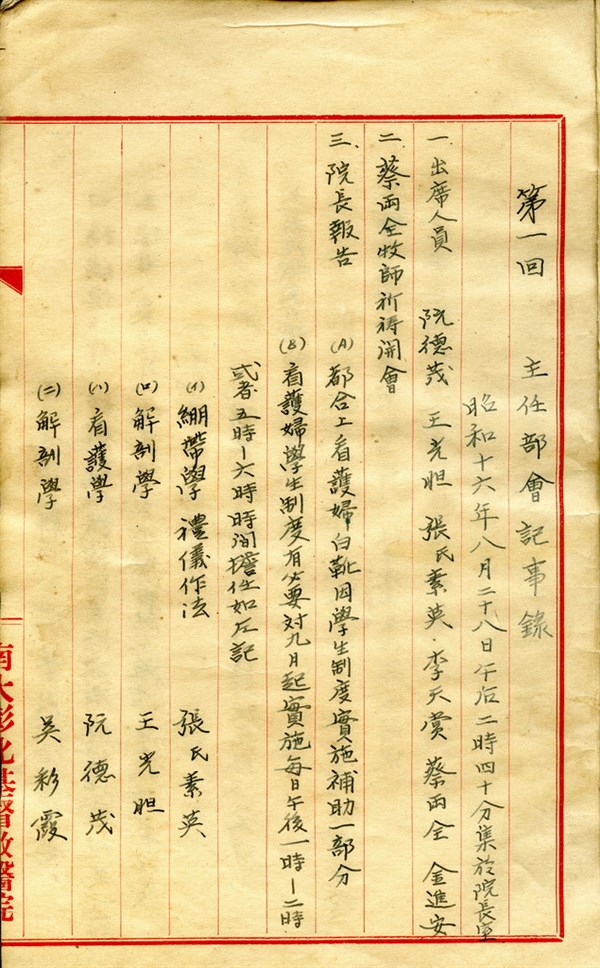 第一回　主任部會記事錄
昭和十六年八月二十八日午后二時四十分集於院長室
一、出席人員　阮德茂　王光胆　張氏素英・李天賞　蔡両全　金進安
二、蔡両全牧師祈祷開會
三、院長報告
(A)都合上看護婦白靴因學生制度實施補助一部分
(B)看護婦學生制度有必要対九月起實施每日午後一時－二時
或者五時－六時時间擔任如左記
(イ)綳帶學　禮儀作法　張氏素英
(ロ)解剖學　王光胆
(ハ)看護學　阮德茂
(ニ)解剖學　吳彩霞
彰化基督教醫院